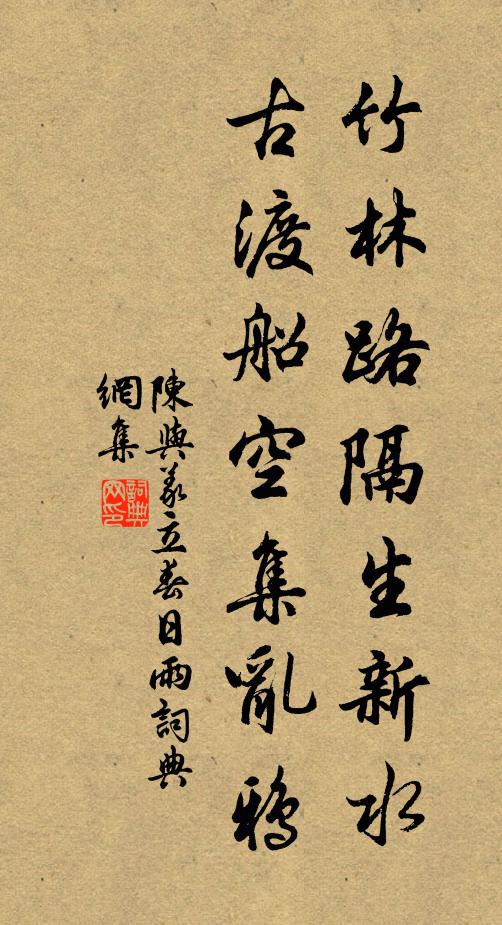 竹林路隔生新水
古渡船空集亂鴉
陳與義立春日雨詞典
網集
詞典
网印